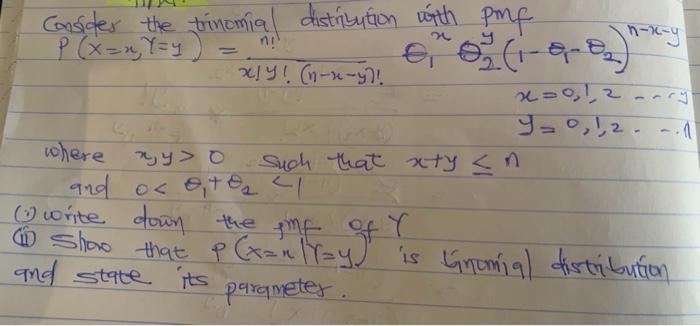 Consider the trinomial distribution with pmf
P(X=x, Y=y) = n! / x! y! (n-x-y)! θ₁ˣ θ₂ʸ (1-θ₁-θ₂)ⁿ⁻ˣ⁻ʸ
x = 0, 1, 2 ----
y = 0, 1, 2 - - . n
where x, y > 0 such that x+y ≤ n
and 0 < θ₁ + θ₂ < 1
(i) write down the pmf of Y
(ii) Show that P(X=x|Y=y) is binomial distribution
and state its parameter.